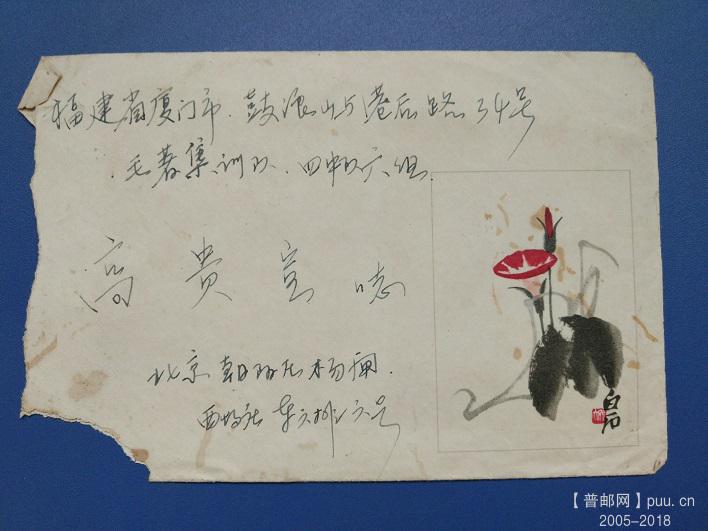 福建省厦门市.鼓浪屿港后路34号
毛著集训队.四中队六组.
高贵宝 同志
北京朝阳区杨闸.
西
白石
【普邮网】puu.cn
2005-2018